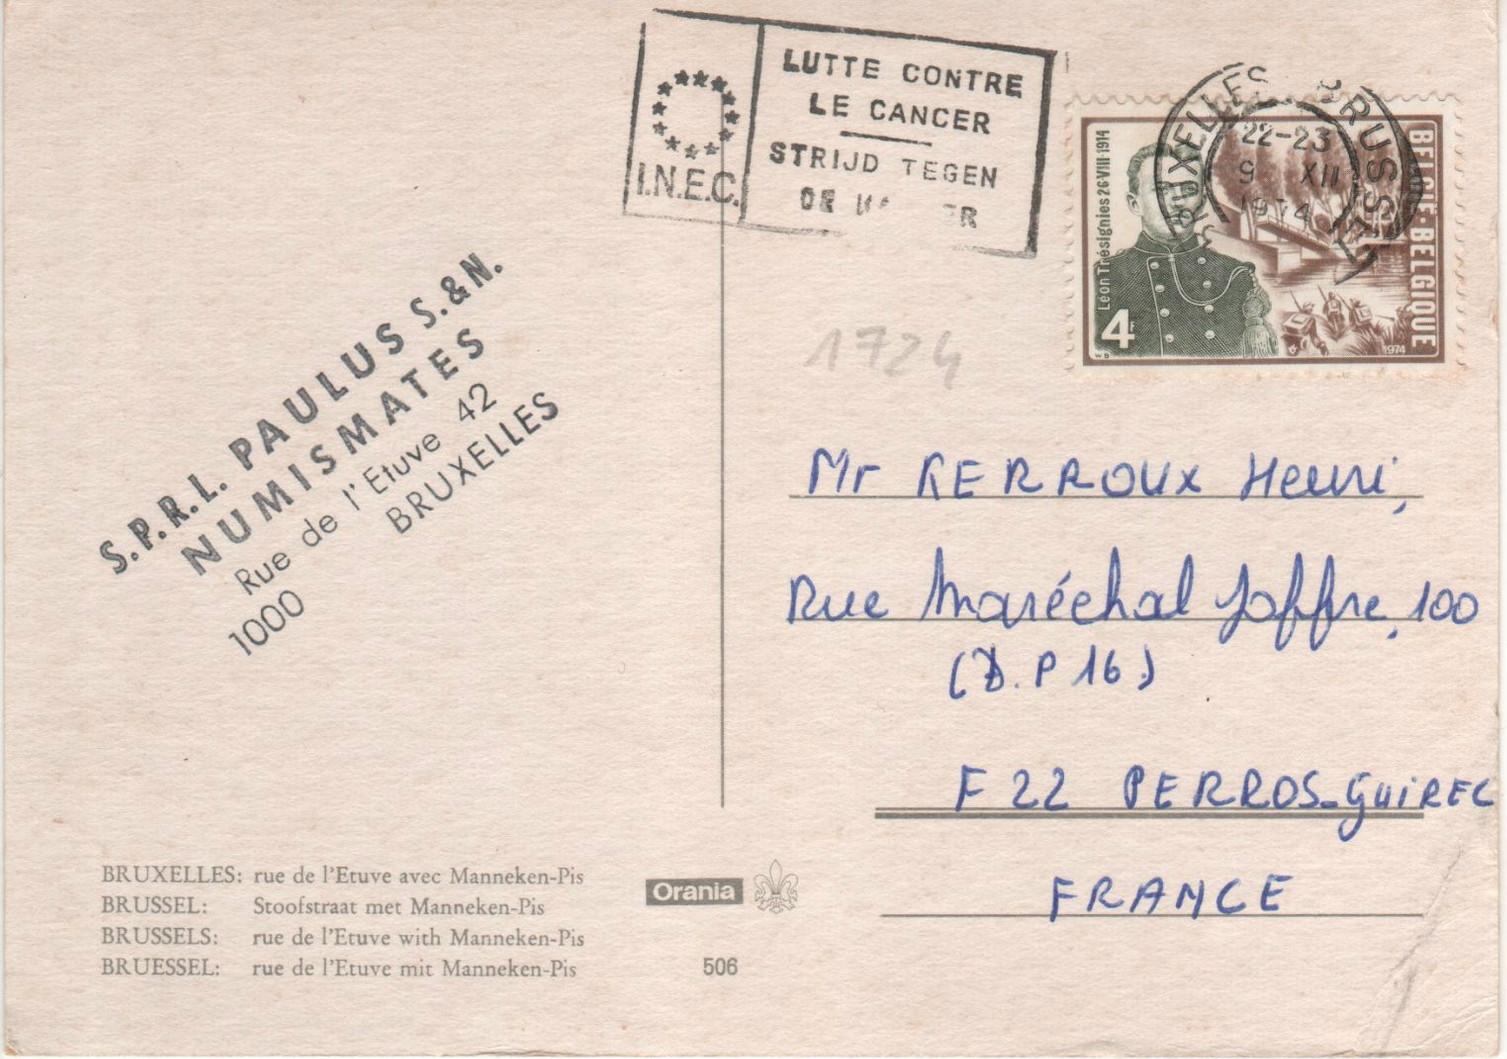 LUTTE CONTRE
LE CANCER
STRIJD TEGEN
DE
I.N.E.C.
BRUXELLES BRUSSEL
22-23
9 XII
1974
Léon Trésignies 26·VIII·1914
BELGIË-BELGIQUE
4F
1974
S.P.R.L. PAULUS S.&N.
NUMISMATES
Rue de l'Etuve 42
1000 BRUXELLES
1724
Mr KERROUX Henri,
Rue Maréchal Joffre, 100
(B.P 16)
F 22 PERROS-GUIREC
FRANCE
BRUXELLES: rue de l'Etuve avec Manneken-Pis
BRUSSEL: Stoofstraat met Manneken-Pis
BRUSSELS: rue de l'Etuve with Manneken-Pis
BRUESSEL: rue de l'Etuve mit Manneken-Pis
Orania
506